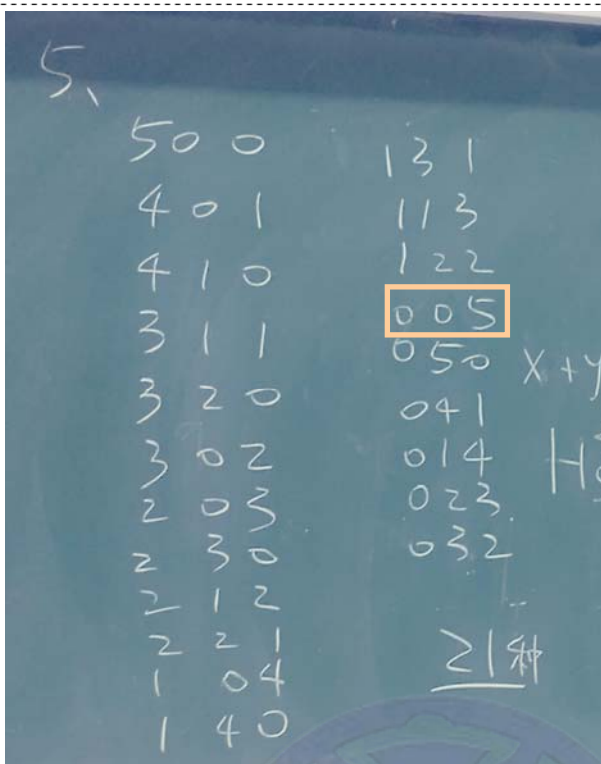 5、
500
401
410
311
320
302
203
230
212
221
104
140
131
113
122
005
050
041
014
023
032
21种
X+y
H